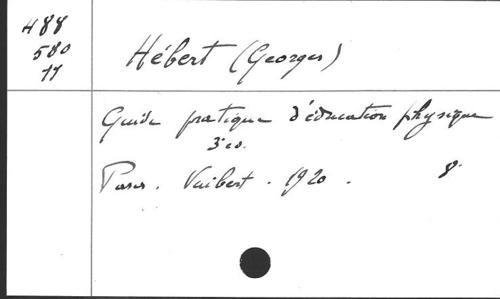 488
580
11
Hébert (Georges)
Guide pratique d'éducation physique
3e éd.
Paris. Vuibert. 1920. 8°